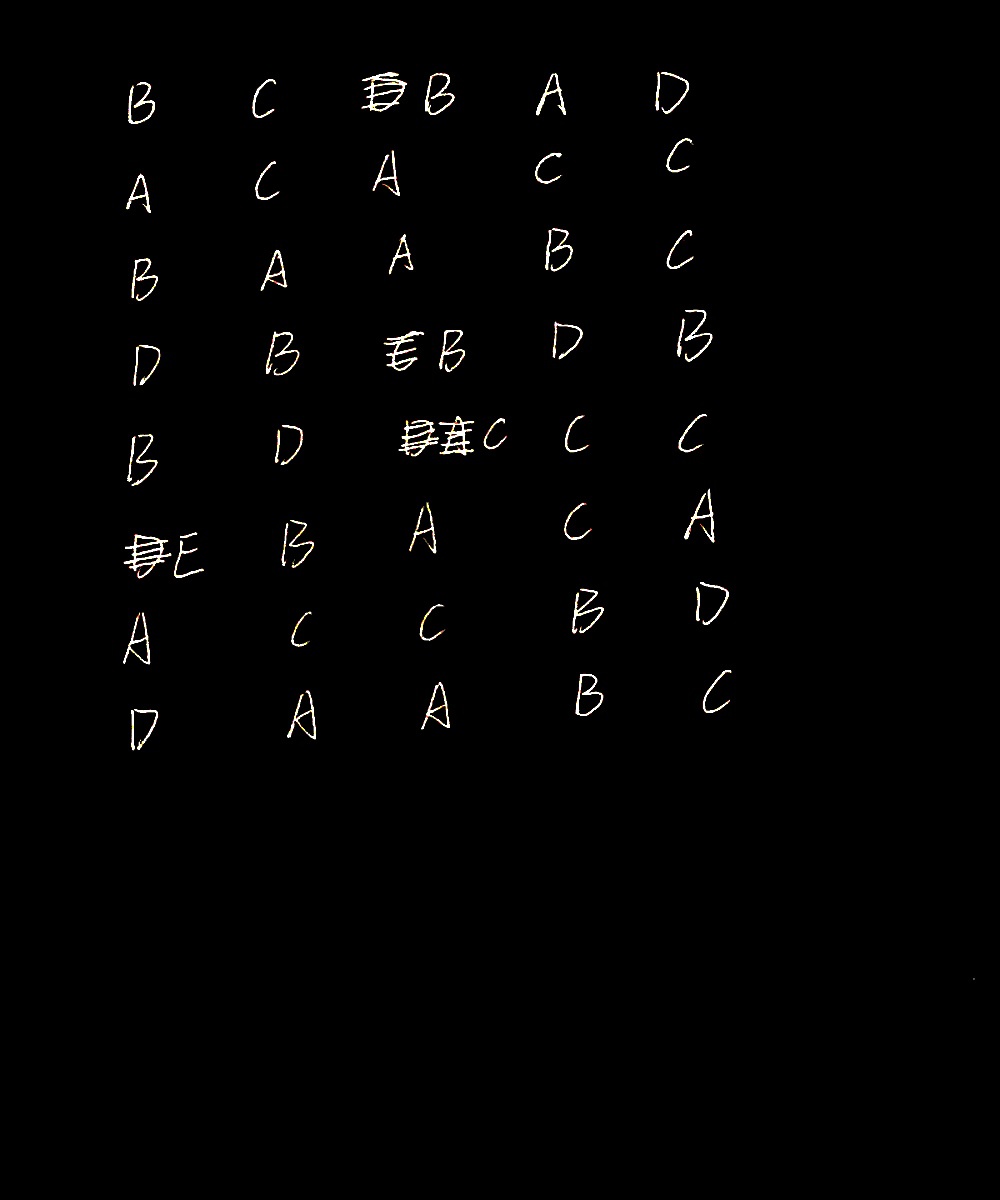 B C B A D
A C A C C
B A A B C
D B B D B
B D C C C
E B A C A
A C C B D
D A A B C